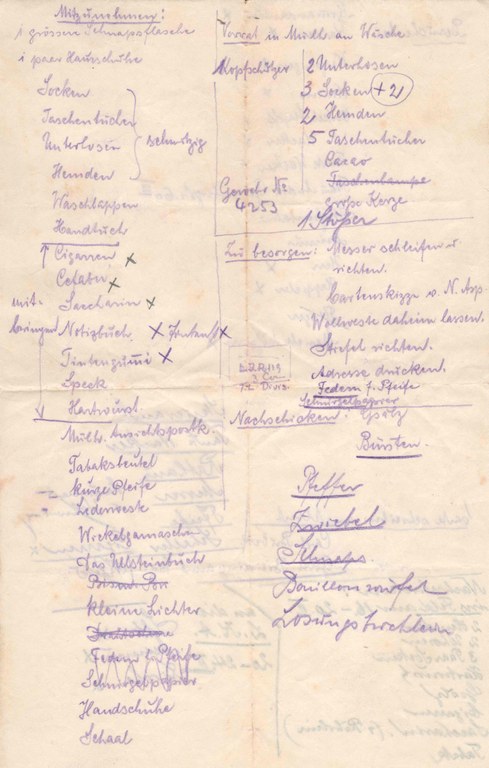 Mitzunehmen:
1 grössere Schnapsflasche
1 paar Hausschuhe
Socken
Taschentücher
Unterhosen
schmutzig
Hemden
Waschlappen
Handtuch
Cigarren x
x
Saccharin x
mitbringen
Notizbuch x
Tintengummi x
Speck
Hartwurst
Mülh. Ansichtspostk.
Tabaksbeutel
kurze Pfeife
Lederweste
Wickelgamaschen
Das Ullsteinbuch
kleine Lichter
Federn f. Pfeife
Schmirgelpapier
Handschuhe
Schaal
Vorrat in Mülh. an Wäsche
1 Kopfschützer
2 Unterhosen
3 Socken +21
2 Hemden
5 Taschentücher
Cacao
Taschenlampe
große Kerze
Gewehr No
4253
Zu besorgen:
Messer schleifen u
richten.
Kartenskizze v. N. Asp.
Wollweste daheim lassen.
Stiefel richten.
Adresse drucken.
Federn f. Pfeife
Schmirgelpapier
Nachschicken:
Bürsten.
Pfeffer
Zwiebel
Schnaps.
Bouillonwürfel
Losungsbüchlein